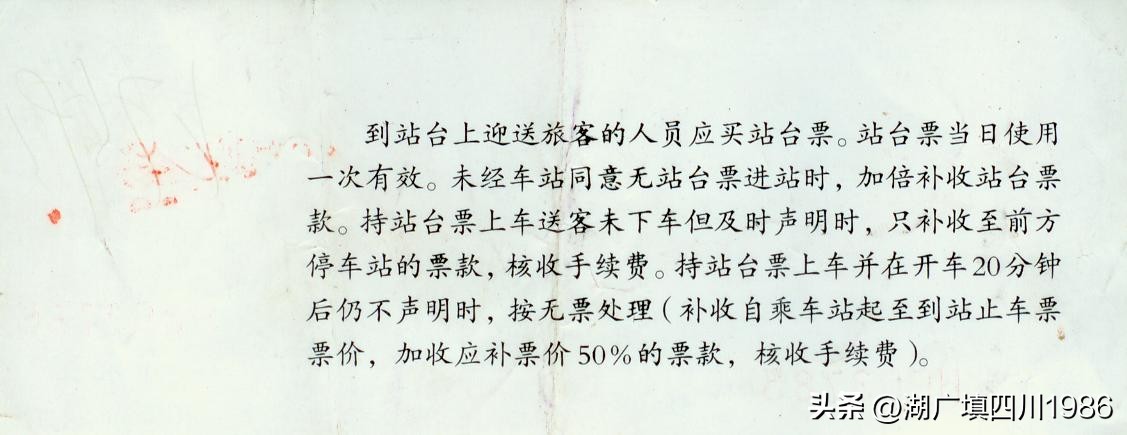 到站台上迎送旅客的人员应买站台票。站台票当日使用
一次有效。未经车站同意无站台票进站时，加倍补收站台票
款。持站台票上车送客未下车但及时声明时，只补收至前方
停车站的票款，核收手续费。持站台票上车并在开车20分钟
后仍不声明时，按无票处理（补收自乘车站起至到站止车票
票价，加收应补票价50%的票款，核收手续费）。
头条 @湖广填四川1986